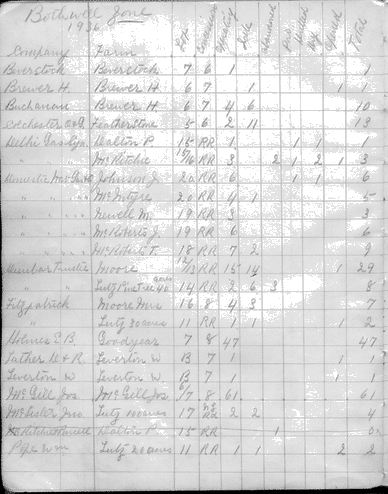 Bothwell Zone
1936
Company Farm Lot Concession Operating Idle Abandoned Pulled Dry Opened Total
Beverstock Beverstock 7 6 1 1
Brewer H. Brewer H. 6 7 1 1 1
Buchanan Brewer H. 6 7 4 6 10
Colchester O&G Featherstone 5 6 2 11 13
Delhi Gas Syn. Dalton P. 15 RR 1 1 1
" " McRitchie 16 RR 3 2 1 2 3
Johnson J. 20 RR 6 1 1 6
" " " McIntyre 20 RR 4 1 5
" " " Newell M. 19 RR 3 3
" " " McRoberts J. 19 RR 6 6
" " " McRoberts T. 18 RR 7 2 9
Moore 12/13 RR 15 14 1 29
" Lutz 40 acres 14 RR 2 6 3 8
Fitzpatrick Moore Mrs 16 8 4 3 7
" Lutz 30 acres 11 RR 1 1 1 2
Holmes C.B. Goodyear 7 8 47 47
Luther H & R. Leverton W B 7 1 1 1
Leverton W Leverton W B 7 1 1 1
McGill Jos. McGill Jos. 6/7 8 61 61
Lutz 100 acres 17 RR 2 2 4
Dalton P. 15 RR 1 0
Pope Wm Lutz 20 acres 11 RR 1 1 2 2